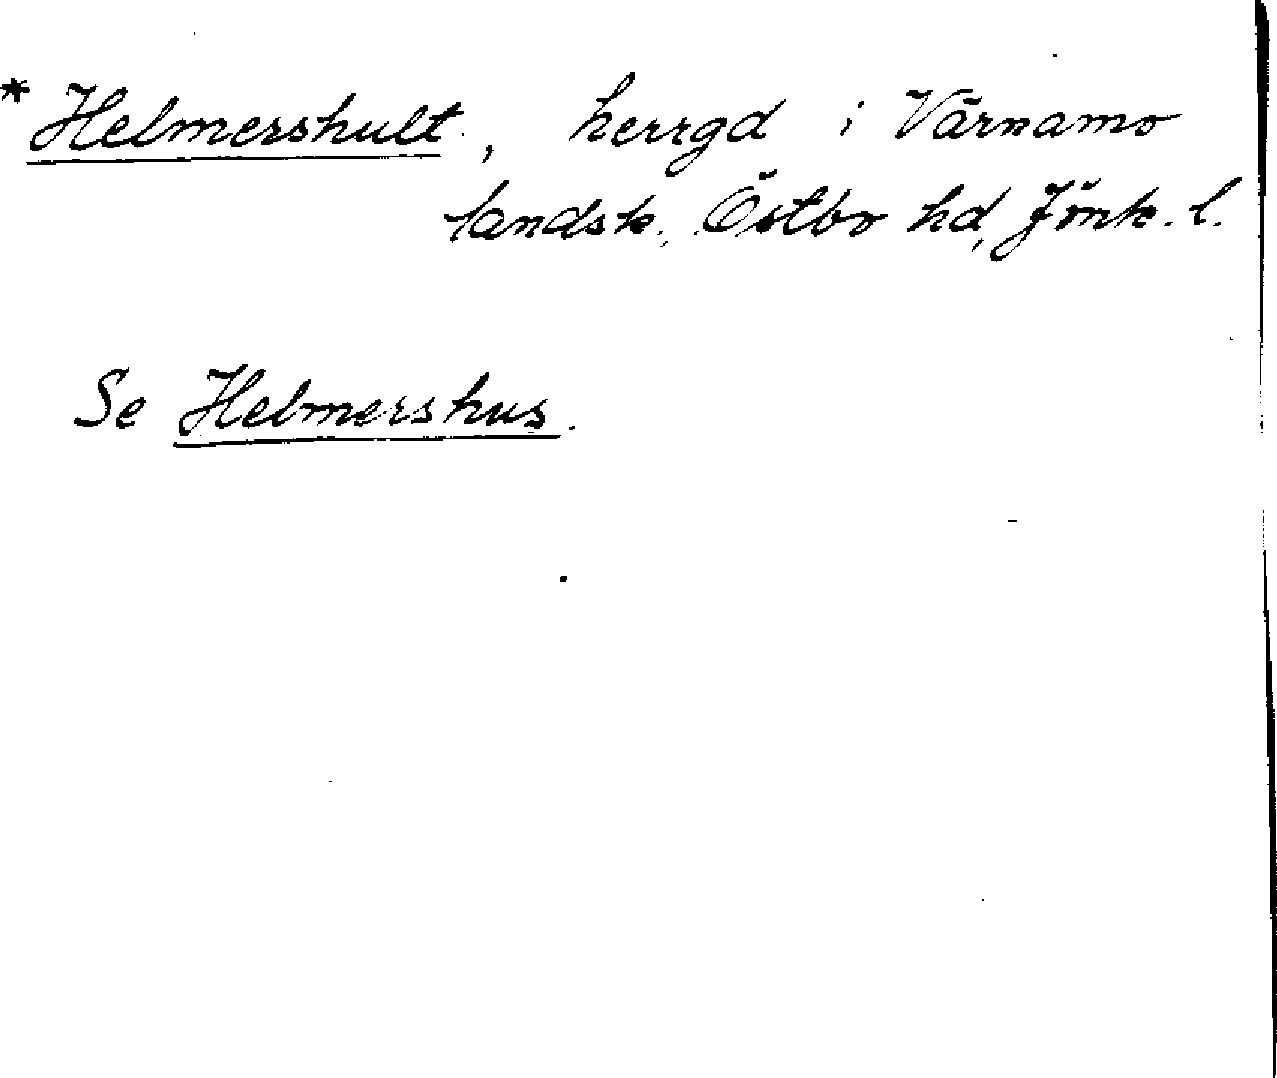 * Helmershult, herrgd i Värnamo
landsk., Östbo hd, Jönk. l.
Se Helmershus.